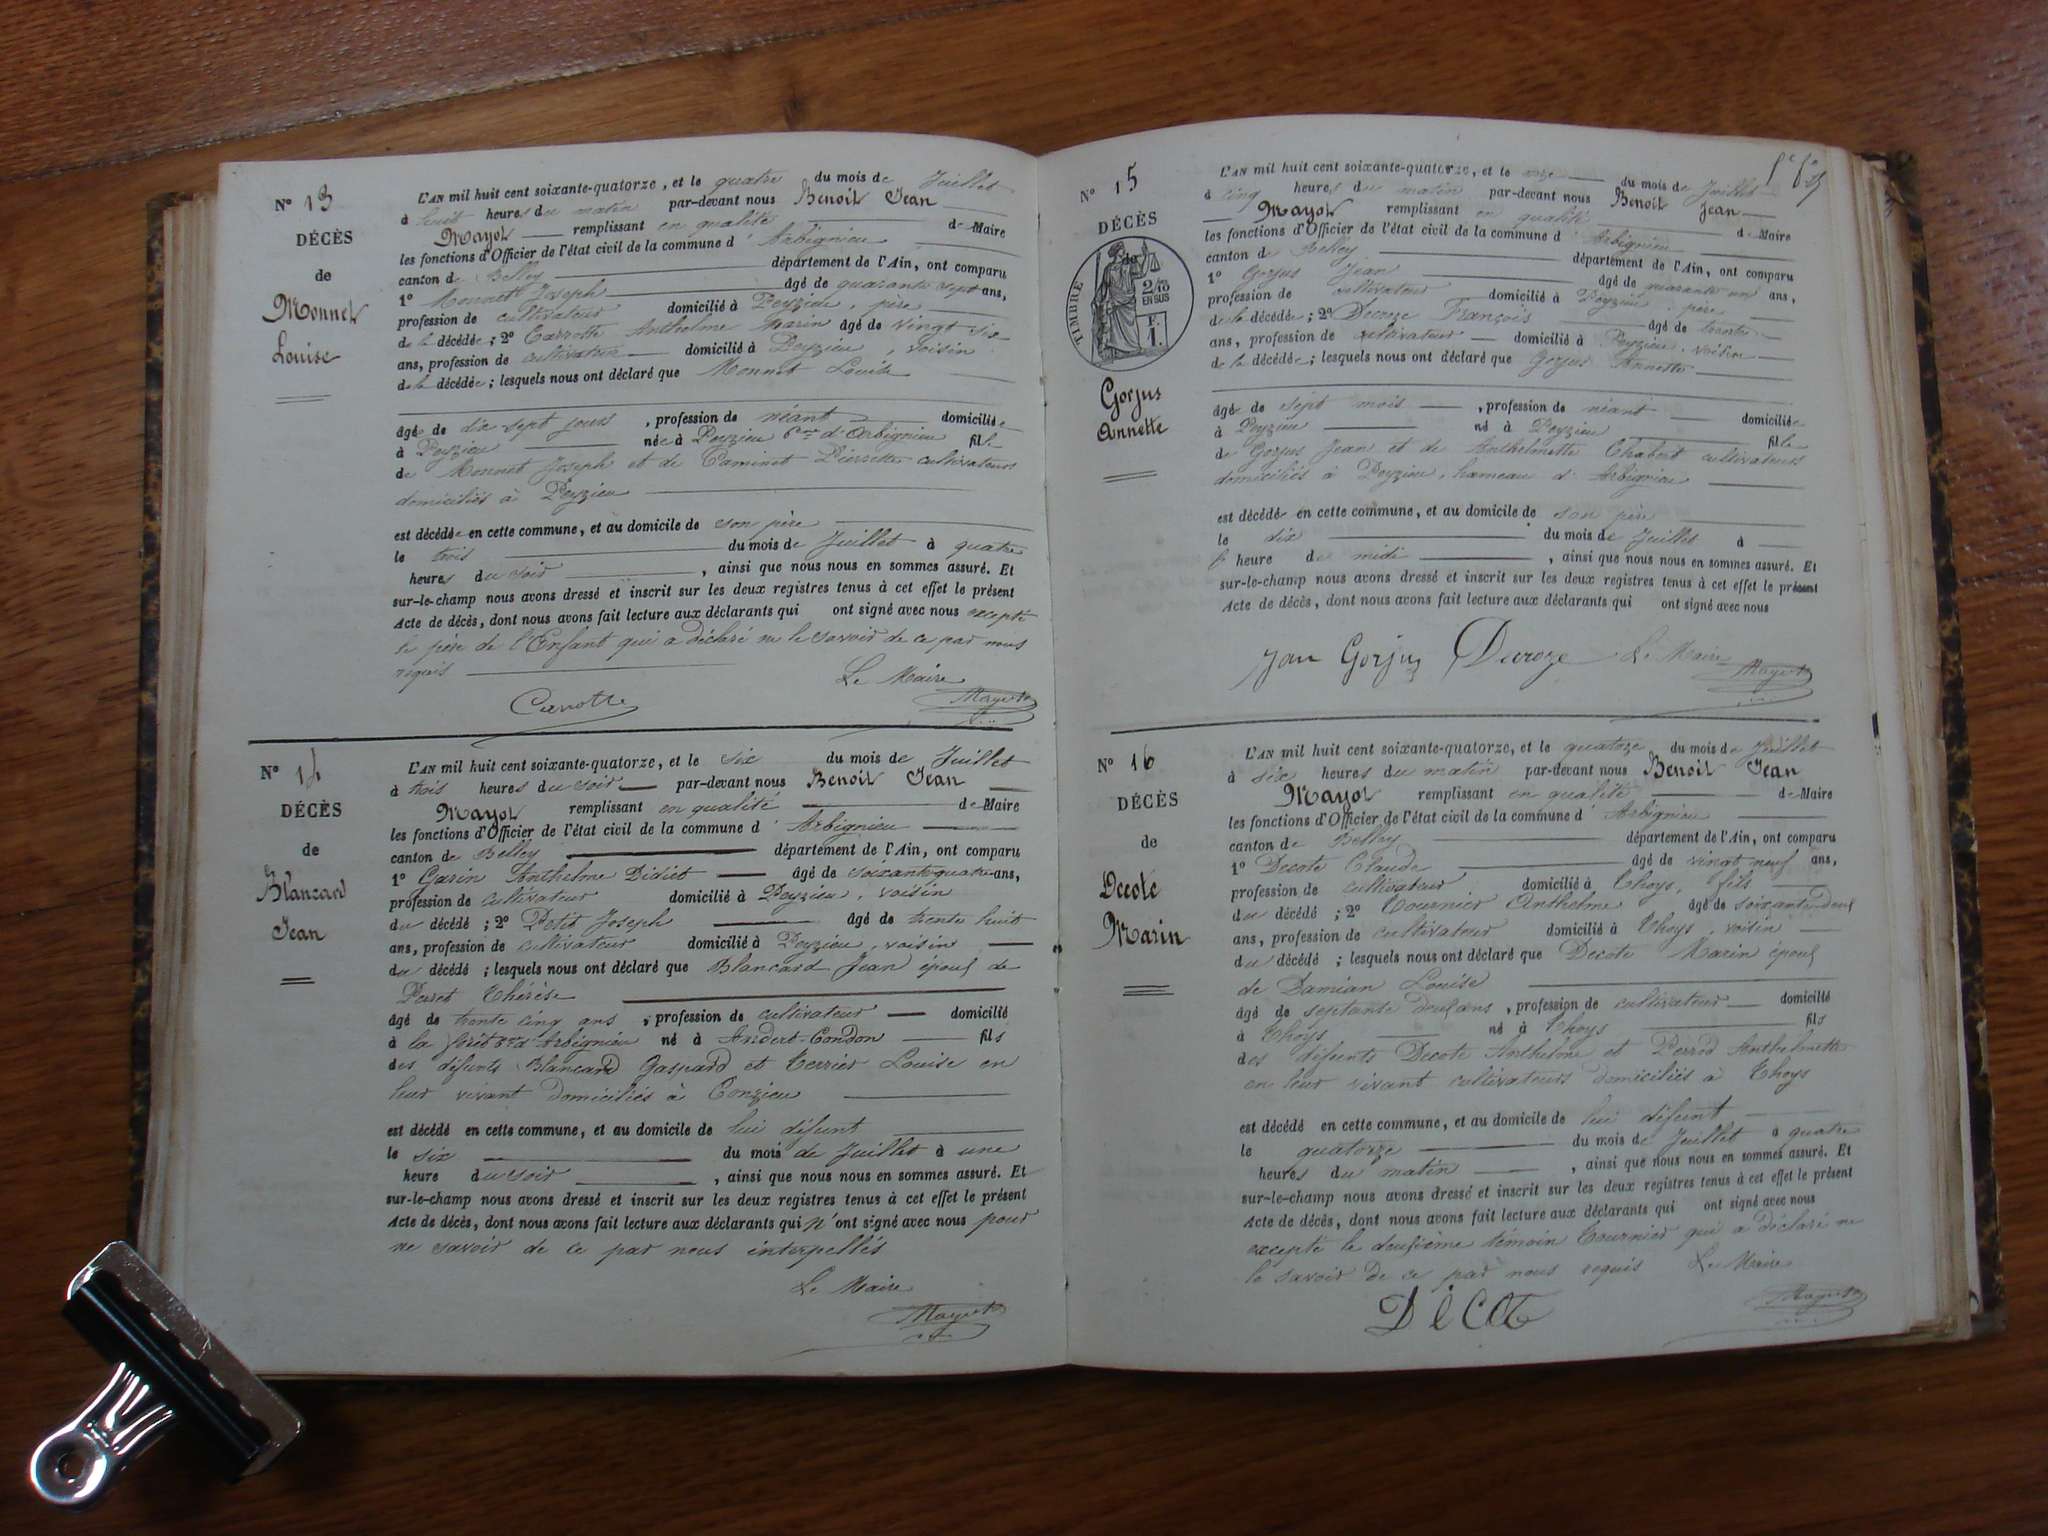 N° 13
DÉCÈS
de
Monnet
Louise
L'AN mil huit cent soixante-quatorze, et le quatre du mois de Juillet
à huit heures du matin par-devant nous Benoit Jean
Mayot remplissant en qualité de Maire
les fonctions d'Officier de l'état civil de la commune d'Arbignieu
canton de Belley département de l'Ain, ont comparu
1° Monnet Joseph âgé de quarante sept ans,
profession de cultivateur domicilié à Peyzieu, père
de la décédée ; 2° Carrotte Anthelme Marin âgé de vingt six
ans, profession de cultivateur domicilié à Peyzieu, voisin
de la décédée ; lesquels nous ont déclaré que Monnet Louise
âgé de dix sept jours, profession de néant domiciliée
à Peyzieu née à Peyzieu Cne d'Arbignieu fille
de Monnet Joseph et de Caminet Pierrette cultivateurs
domiciliés à Peyzieu
est décédée en cette commune, et au domicile de son père
le trois du mois de Juillet à quatre
heures du soir, ainsi que nous nous en sommes assuré. Et
sur-le-champ nous avons dressé et inscrit sur les deux registres tenus à cet effet le présent
Acte de décès, dont nous avons fait lecture aux déclarants qui ont signé avec nous excepté
le père de l'Enfant qui a déclaré ne le savoir de ce par nous
requis
Le Maire
Carrotte Mayot
N° 14
DÉCÈS
de
Blancard
Jean
L'AN mil huit cent soixante-quatorze, et le six du mois de Juillet
à trois heures du soir par-devant nous Benoit Jean
Mayot remplissant en qualité de Maire
les fonctions d'Officier de l'état civil de la commune d'Arbignieu
canton de Belley département de l'Ain, ont comparu
1° Garin Anthelme Didier âgé de soixante quatre ans,
profession de cultivateur domicilié à Peyzieu, voisin
du décédé ; 2° Petit Joseph âgé de trente huit
ans, profession de cultivateur domicilié à Peyzieu, voisin
du décédé ; lesquels nous ont déclaré que Blancard Jean époux de
Perret Thérèse
âgé de trente cinq ans, profession de cultivateur domicilié
à la forêt Cne d'Arbignieu né à Andert-Condon fils
des défunts Blancard Gaspard et Terrier Louise en
leur vivant domiciliés à Conzieu
est décédé en cette commune, et au domicile de lui défunt
le six du mois de Juillet à une
heure du soir, ainsi que nous nous en sommes assuré. Et
sur-le-champ nous avons dressé et inscrit sur les deux registres tenus à cet effet le présent
Acte de décès, dont nous avons fait lecture aux déclarants qui n'ont signé avec nous pour
ne savoir de ce par nous interpellés
Le Maire
Mayot
N° 15
DÉCÈS
de
TIMBRE
2/10
EN SUS
F.
1.
Gorjus
Annette
L'AN mil huit cent soixante-quatorze, et le onze du mois de Juillet
à cinq heures du matin par-devant nous Benoit Jean
Mayot remplissant en qualité de Maire
les fonctions d'Officier de l'état civil de la commune d'Arbignieu
canton de Belley département de l'Ain, ont comparu
1° Gorjus Jean âgé de quarante un ans,
profession de cultivateur domicilié à Peyzieu, père
de la décédée ; 2° Decroze François âgé de trente
ans, profession de cultivateur domicilié à Peyzieu, voisin
de la décédée ; lesquels nous ont déclaré que Gorjus Annette
âgé de sept mois, profession de néant domiciliée
à Peyzieu né à Peyzieu fille
de Gorjus Jean et de Anthelmette Chabert cultivateurs
domiciliés à Peyzieu, hameau d'Arbignieu
est décédé en cette commune, et au domicile de son père
le dix du mois de Juillet à
heure de midi, ainsi que nous nous en sommes assuré. Et
sur-le-champ nous avons dressé et inscrit sur les deux registres tenus à cet effet le présent
Acte de décès, dont nous avons fait lecture aux déclarants qui ont signé avec nous
Jan Gorjus Decroze Le Maire Mayot
N° 16
DÉCÈS
de
Decote
Marin
L'AN mil huit cent soixante-quatorze, et le quatorze du mois de Juillet
à six heures du matin par-devant nous Benoit Jean
Mayot remplissant en qualité de Maire
les fonctions d'Officier de l'état civil de la commune d'Arbignieu
canton de Belley département de l'Ain, ont comparu
1° Decote Claude âgé de vingt neuf ans,
profession de cultivateur domicilié à Thoys, fils
du décédé ; 2° Tournier Anthelme âgé de soixante deux
ans, profession de cultivateur domicilié à Thoys, voisin
du décédé ; lesquels nous ont déclaré que Decote Marin époux
de Damian Louise
âgé de septante deux ans, profession de cultivateur domicilié
à Thoys né à Thoys fils
des défunts Decote Anthelme et Perrod Anthelmette
en leur vivant cultivateurs domiciliés à Thoys
est décédé en cette commune, et au domicile de lui défunt
le quatorze du mois de Juillet à quatre
heures du matin, ainsi que nous nous en sommes assuré. Et
sur-le-champ nous avons dressé et inscrit sur les deux registres tenus à cet effet le présent
Acte de décès, dont nous avons fait lecture aux déclarants qui ont signé avec nous
excepté le deuxième témoin Tournier qui a déclaré ne
le savoir de ce par nous requis Le Maire
Décot Mayot